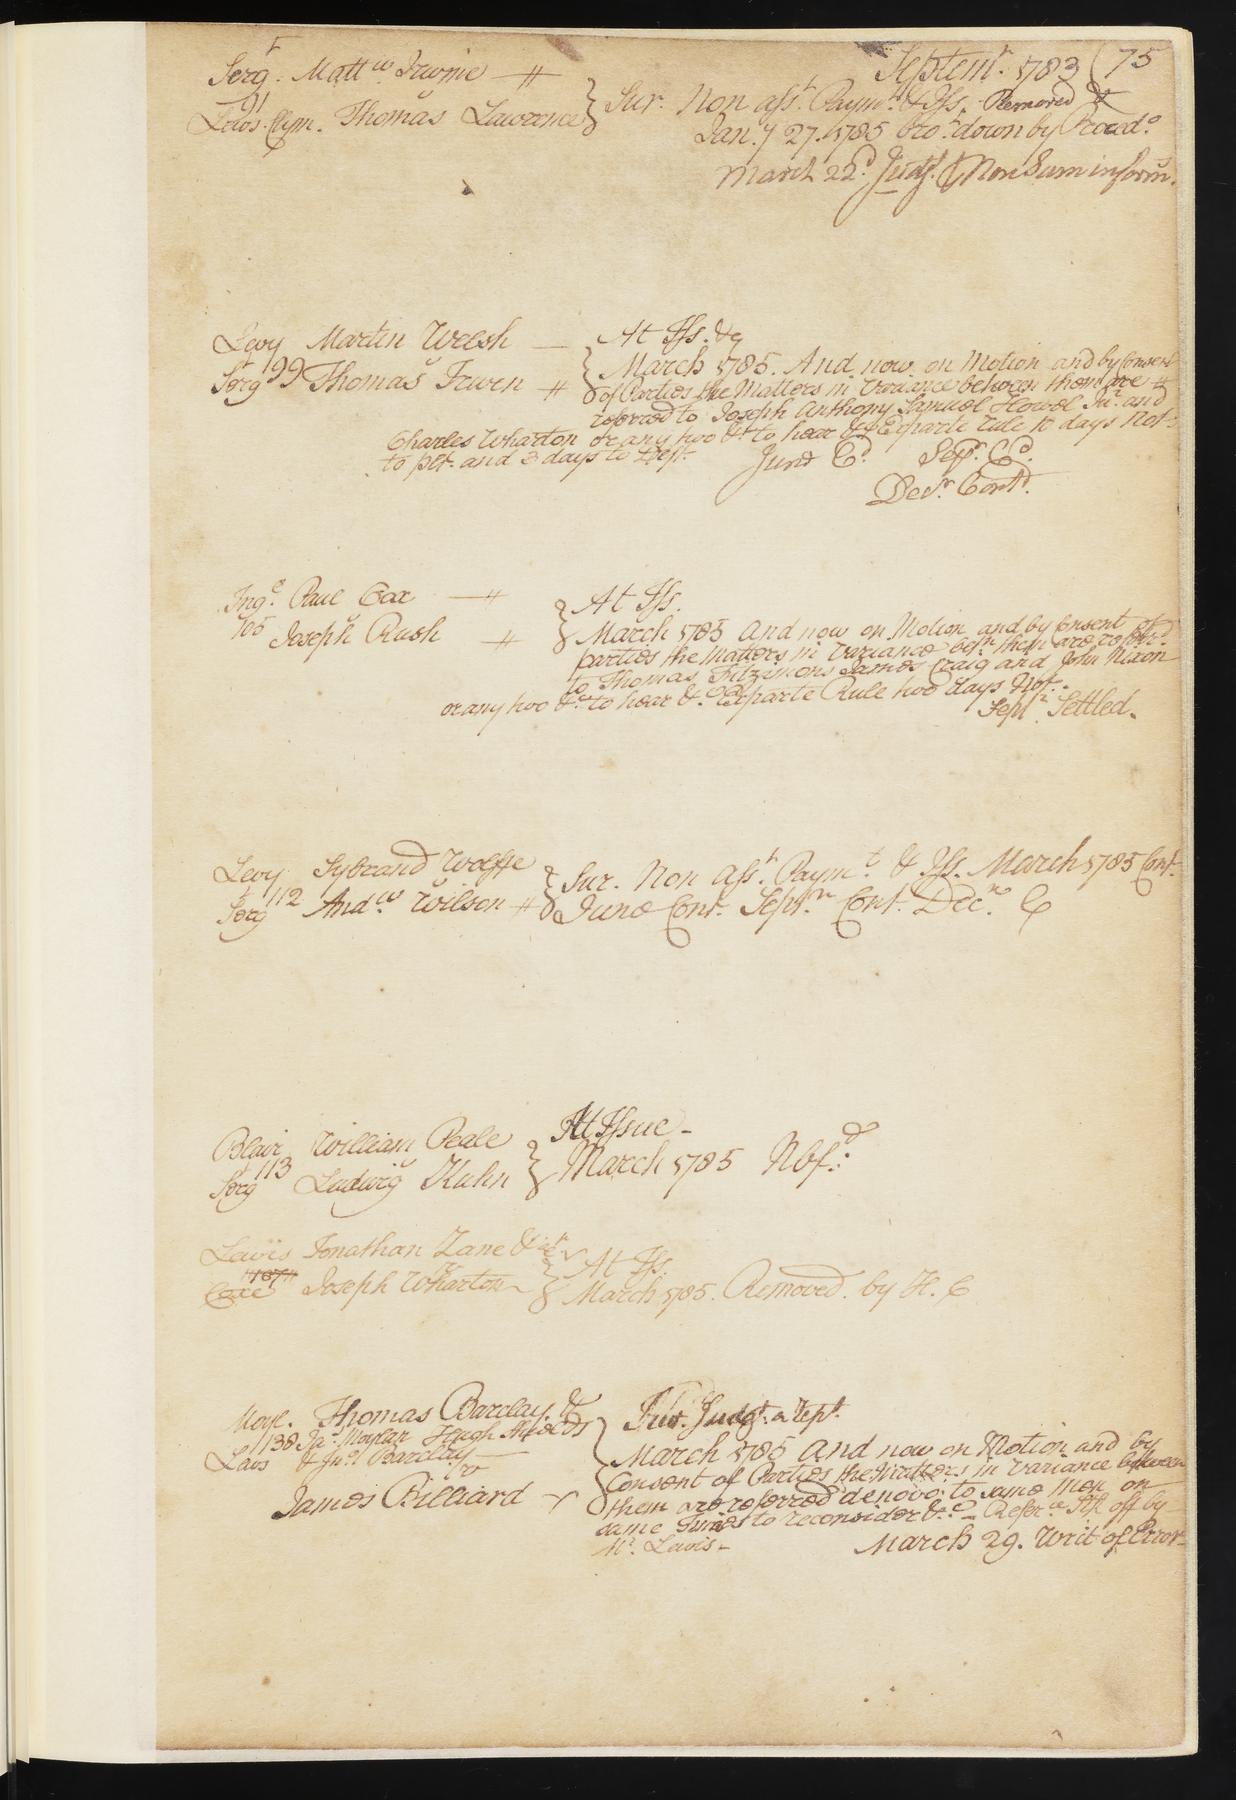 Septemr. 1783 (75
Sergt. Mattw Irwine
91 v
Lews. Clym. Thomas Lawrence } Sur. Non asst. Paymt. & Iss. Removed &
Jany 27. 1785 brot. down by Procedo.
March 22d. Judgt. Non Sum inform.
Levy Martin Welsh — } At Iss. &c
99 v
Serg Thomas Irwin
March 1785. And now on Motion and by Consent
of Parties the Matters in Variance between them are
referred to Joseph Anthony Samuel Howel Junr. and
Charles Wharton or any two &c to hear &c Exparte Rule 10 days Not:
to plt. and 3 days to Deft. June Cd. Sepr. Cd.
Decr. Contd.
Ingo. Paul Cox — } At Iss.
105 v
Joseph Rush
March 1785 And now on Motion and by Consent of
parties the Matters in Variance betn. them are referrd.
to Thomas Fitzimons James Craig and John Nixon
or any two &c. to hear &c. Exparte Rule two days Not:
Sepr. Settled.
Levy Sybrand Wolffe } Sur. Non asst. Paymt. & Iss. March 1785 Cont.
112 v
Serg Andw. Wilson June Cont. Septr. Cont. Decr. C
Blair William Peale } At Issue
113 v
Serg Ludwig Kuhn March 1785 Nbf:
Lewis Jonathan Zane &
167 v
Coxe Joseph Wharton } At Iss.
March 1785. Removed. by H. C
Moyl. Thomas Barclay &
138 Jas. Moylan Hugh Shields
Lews & Jno. Barclay
v
James Billiard
Jud. Judgt. a Rept.
March 1785 And now on Motion and by
Consent of Parties the Matters in Variance between
them are referred denovo: to same Men on
same Terms to reconsider &c. Referce. Stk off by
Mr. Lewis — March 29. Writ of Error